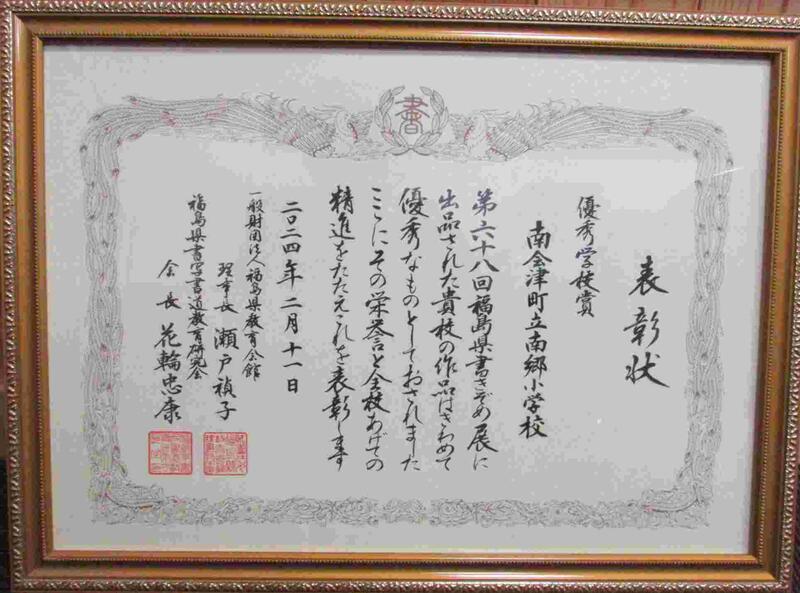 書
表彰状
優秀学校賞
南会津町立南郷小学校
第六十八回福島県書きぞめ展に
出品された貴校の作品はきわめて
優秀なものとしておされました
ここにその栄誉と全校あげての
精進をたたえこれを表彰します
二〇二四年二月十一日
一般財団法人福島県教育会館
理事長 瀬戸禎子
福島県書写書道教育研究会
会長 花輪忠康